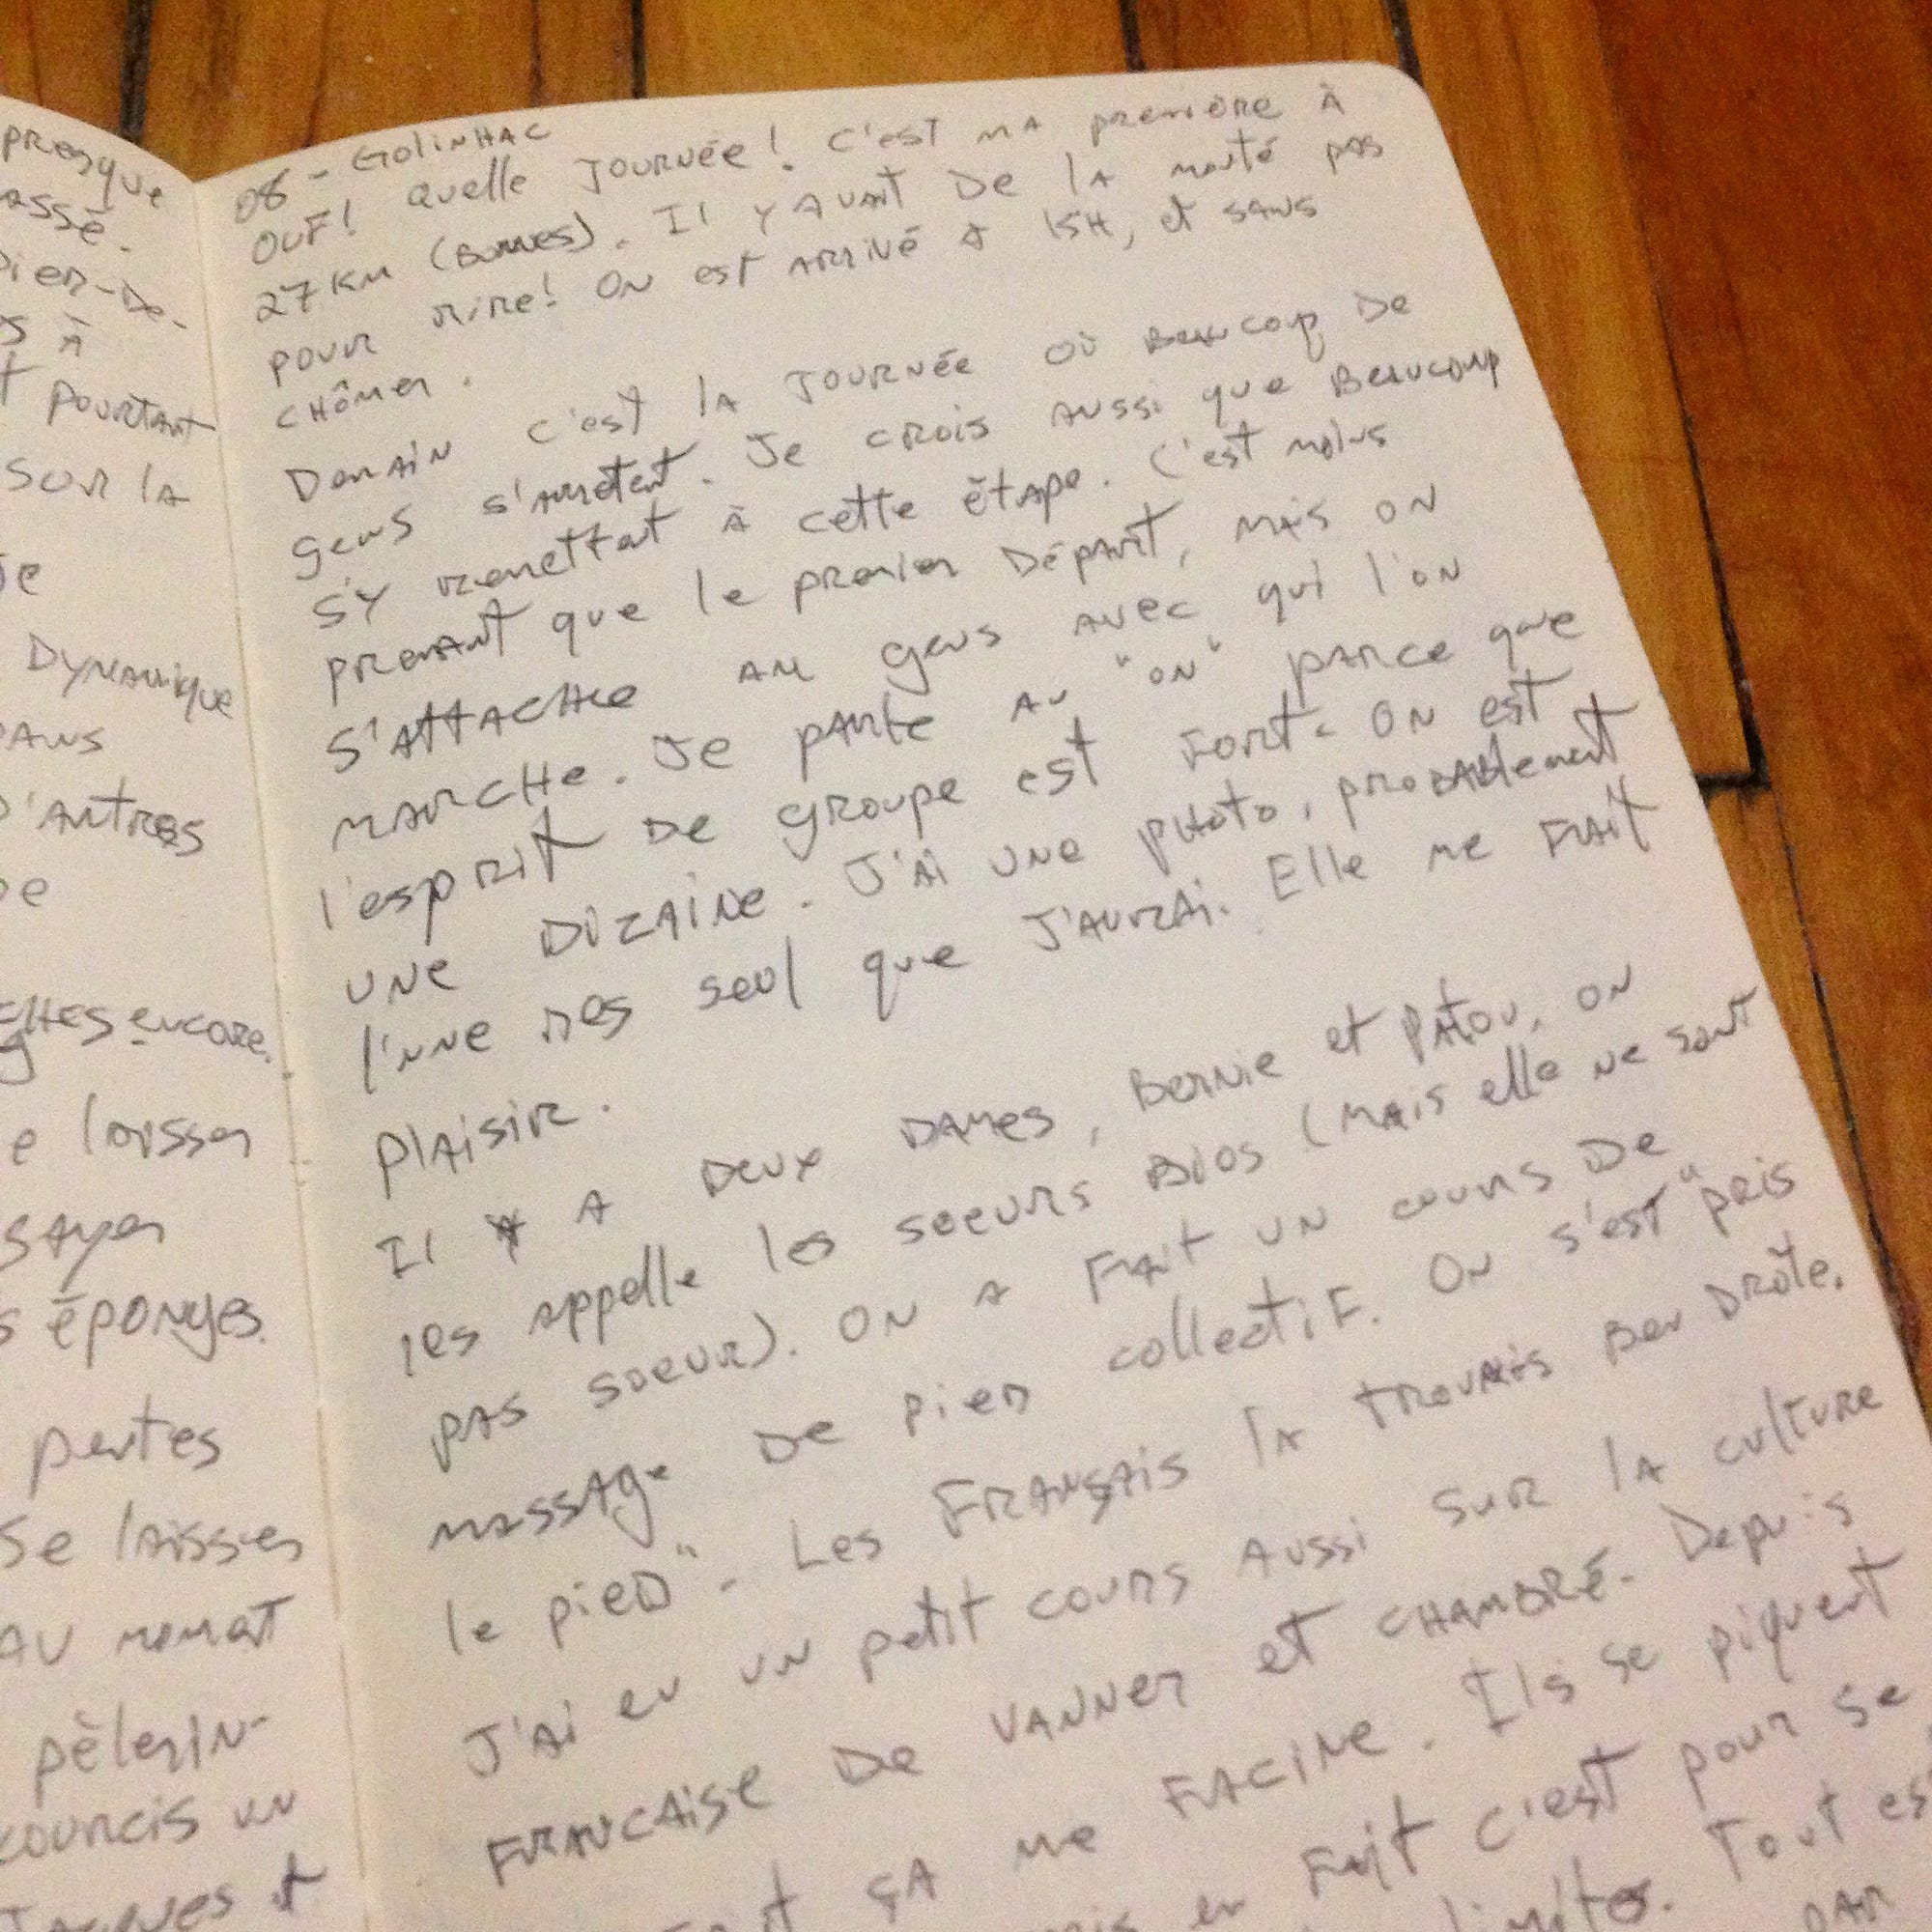 presque
assé.
Pier-De-
s à
t pourtant
sur la
Je
Dynamique
Dans
D'autres
De
ches encore.
e laisser
sayer
s éponges.
pentes
se laisses
au moment
pèlerin-
courcis un
Jacques et
08 - Golinhac
OUF! Quelle journée! C'est ma première à
27 km (Bornes). Il y avait de la monté pas
pour rire! On est arrivé à 15H, et sans
chômer.
Demain c'est la journée où beaucoup de
gens s'arrêtent. Je crois aussi que beaucoup
s'y remettent à cette étape. C'est moins
prenant que le premier départ, mais on
s'attache au gens avec qui l'on
marche. Je parle au "on" parce que
l'esprit de groupe est fort. On est
une dizaine. J'ai une photo, probablement
l'une des seul que j'aurai. Elle me fait
plaisir.
Il y a deux dames, Bernie et Patou, on
les appelle les soeurs Bios (mais elle ne sont
pas soeur). On a fait un cours de
massage de pied collectif. On s'est "pris
le pied". Les Français la trouvais ben drôle.
J'ai eu un petit cours aussi sur la culture
francaise de vanner et chambré. Depuis
ça me facine. Ils se piquent
en fait c'est pour se
limites. Tout es
par